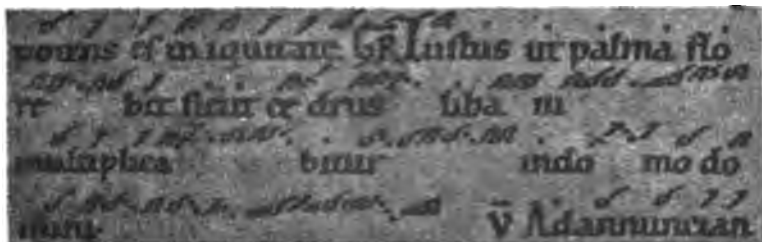 es iniquitate GR Iustus ut palma flo
re bit sicut cedrus liba ni
multiplica bitur indo mo do
mini V Adannuncian